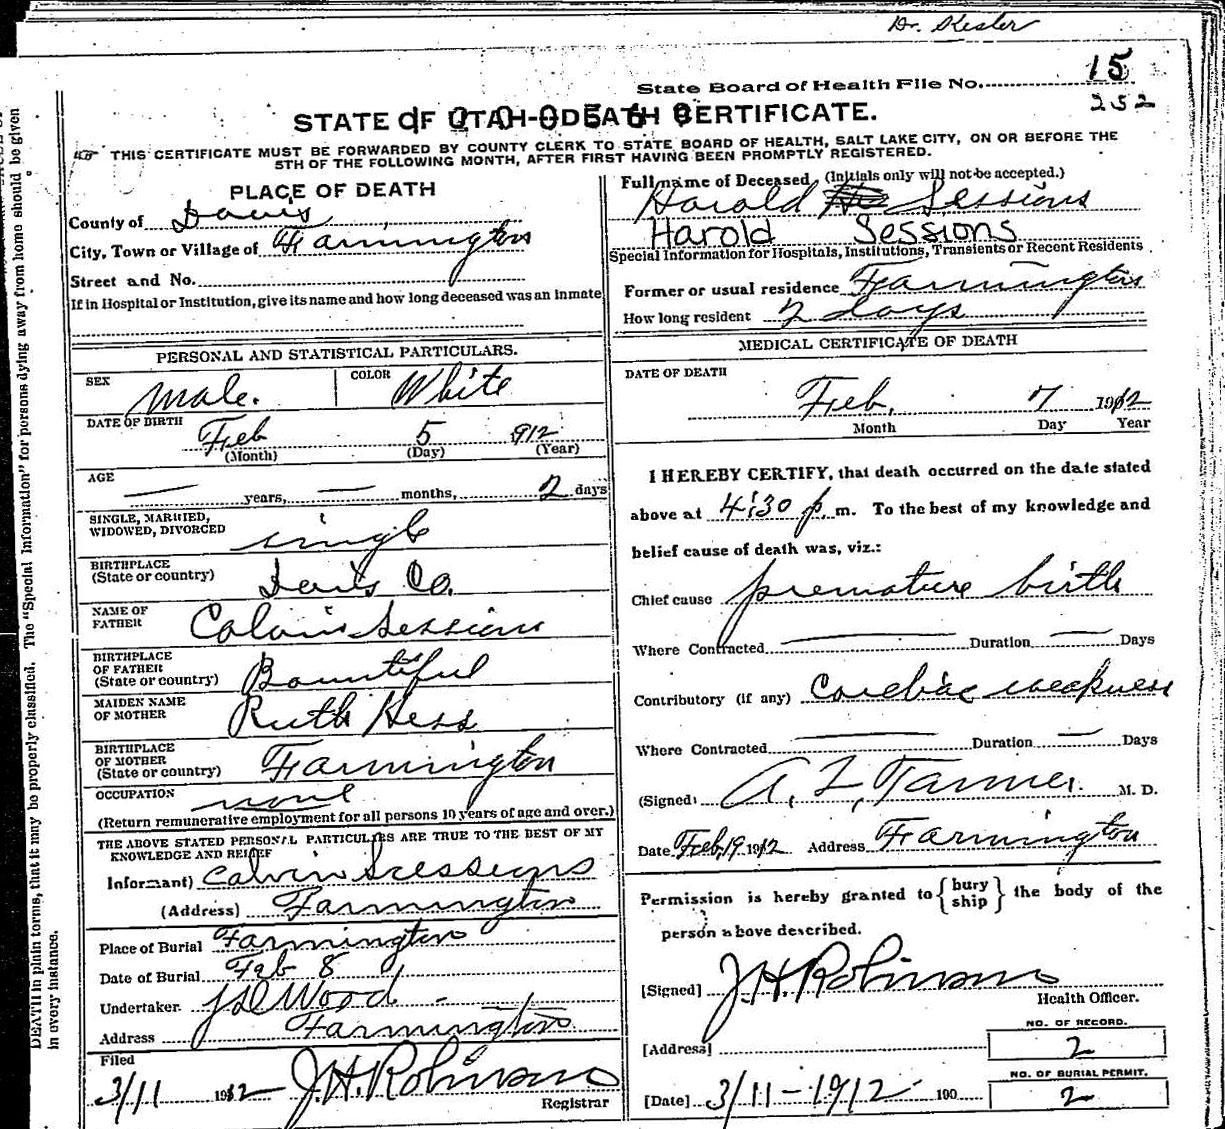 Dr. Kesler
State Board of Health File No. 15
252
STATE OF UTAH—DEATH CERTIFICATE.
THIS CERTIFICATE MUST BE FORWARDED BY COUNTY CLERK TO STATE BOARD OF HEALTH, SALT LAKE CITY, ON OR BEFORE THE
5TH OF THE FOLLOWING MONTH, AFTER FIRST HAVING BEEN PROMPTLY REGISTERED.
PLACE OF DEATH
County of Davis
City, Town or Village of Farmington
Street and No.
If in Hospital or Institution, give its name and how long deceased was an inmate
Full name of Deceased (Initials only will not be accepted.)
Harold Sessions
Harold Sessions
Special Information for Hospitals, Institutions, Transients or Recent Residents
Former or usual residence Farmington
How long resident 2 days
PERSONAL AND STATISTICAL PARTICULARS.
SEX male. COLOR White
DATE OF BIRTH Feb 5 912
(Month) (Day) (Year)
AGE — years, — months, 2 days
SINGLE, MARRIED,
WIDOWED, DIVORCED single
BIRTHPLACE
(State or country) Davis Co.
NAME OF
FATHER Calvin Sessions
BIRTHPLACE
OF FATHER
(State or country) Bountiful
MAIDEN NAME
OF MOTHER Ruth Hess
BIRTHPLACE
OF MOTHER
(State or country) Farmington
OCCUPATION none
(Return remunerative employment for all persons 10 years of age and over.)
THE ABOVE STATED PERSONAL PARTICULARS ARE TRUE TO THE BEST OF MY
KNOWLEDGE AND BELIEF
Informant) Calvin Sessions
(Address) Farmington
Place of Burial Farmington
Date of Burial Feb 8
Undertaker. J D Wood
Address Farmington
Filed
3/11 1912 J.H. Robinson
Registrar
MEDICAL CERTIFICATE OF DEATH
DATE OF DEATH
Feb. 7 1912
Month Day Year
I HEREBY CERTIFY, that death occurred on the date stated
above at 4:30 p. m. To the best of my knowledge and
belief cause of death was, viz.:
Chief cause premature birth
Where Contracted — Duration — Days
Contributory (if any) Cardiac weakness
Where Contracted — Duration — Days
(Signed) A. Z. Tanner. M. D.
Date Feb. 19 1912 Address Farmington
Permission is hereby granted to {bury ship} the body of the
person above described.
[Signed] J.H. Robinson
Health Officer.
[Address]
NO. OF RECORD.
2
NO. OF BURIAL PERMIT.
[Date] 3/11-1912 190
2
DEATH in plain terms, that it may be properly classified. The "Special Information" for persons dying away from home should be given
in every instance.